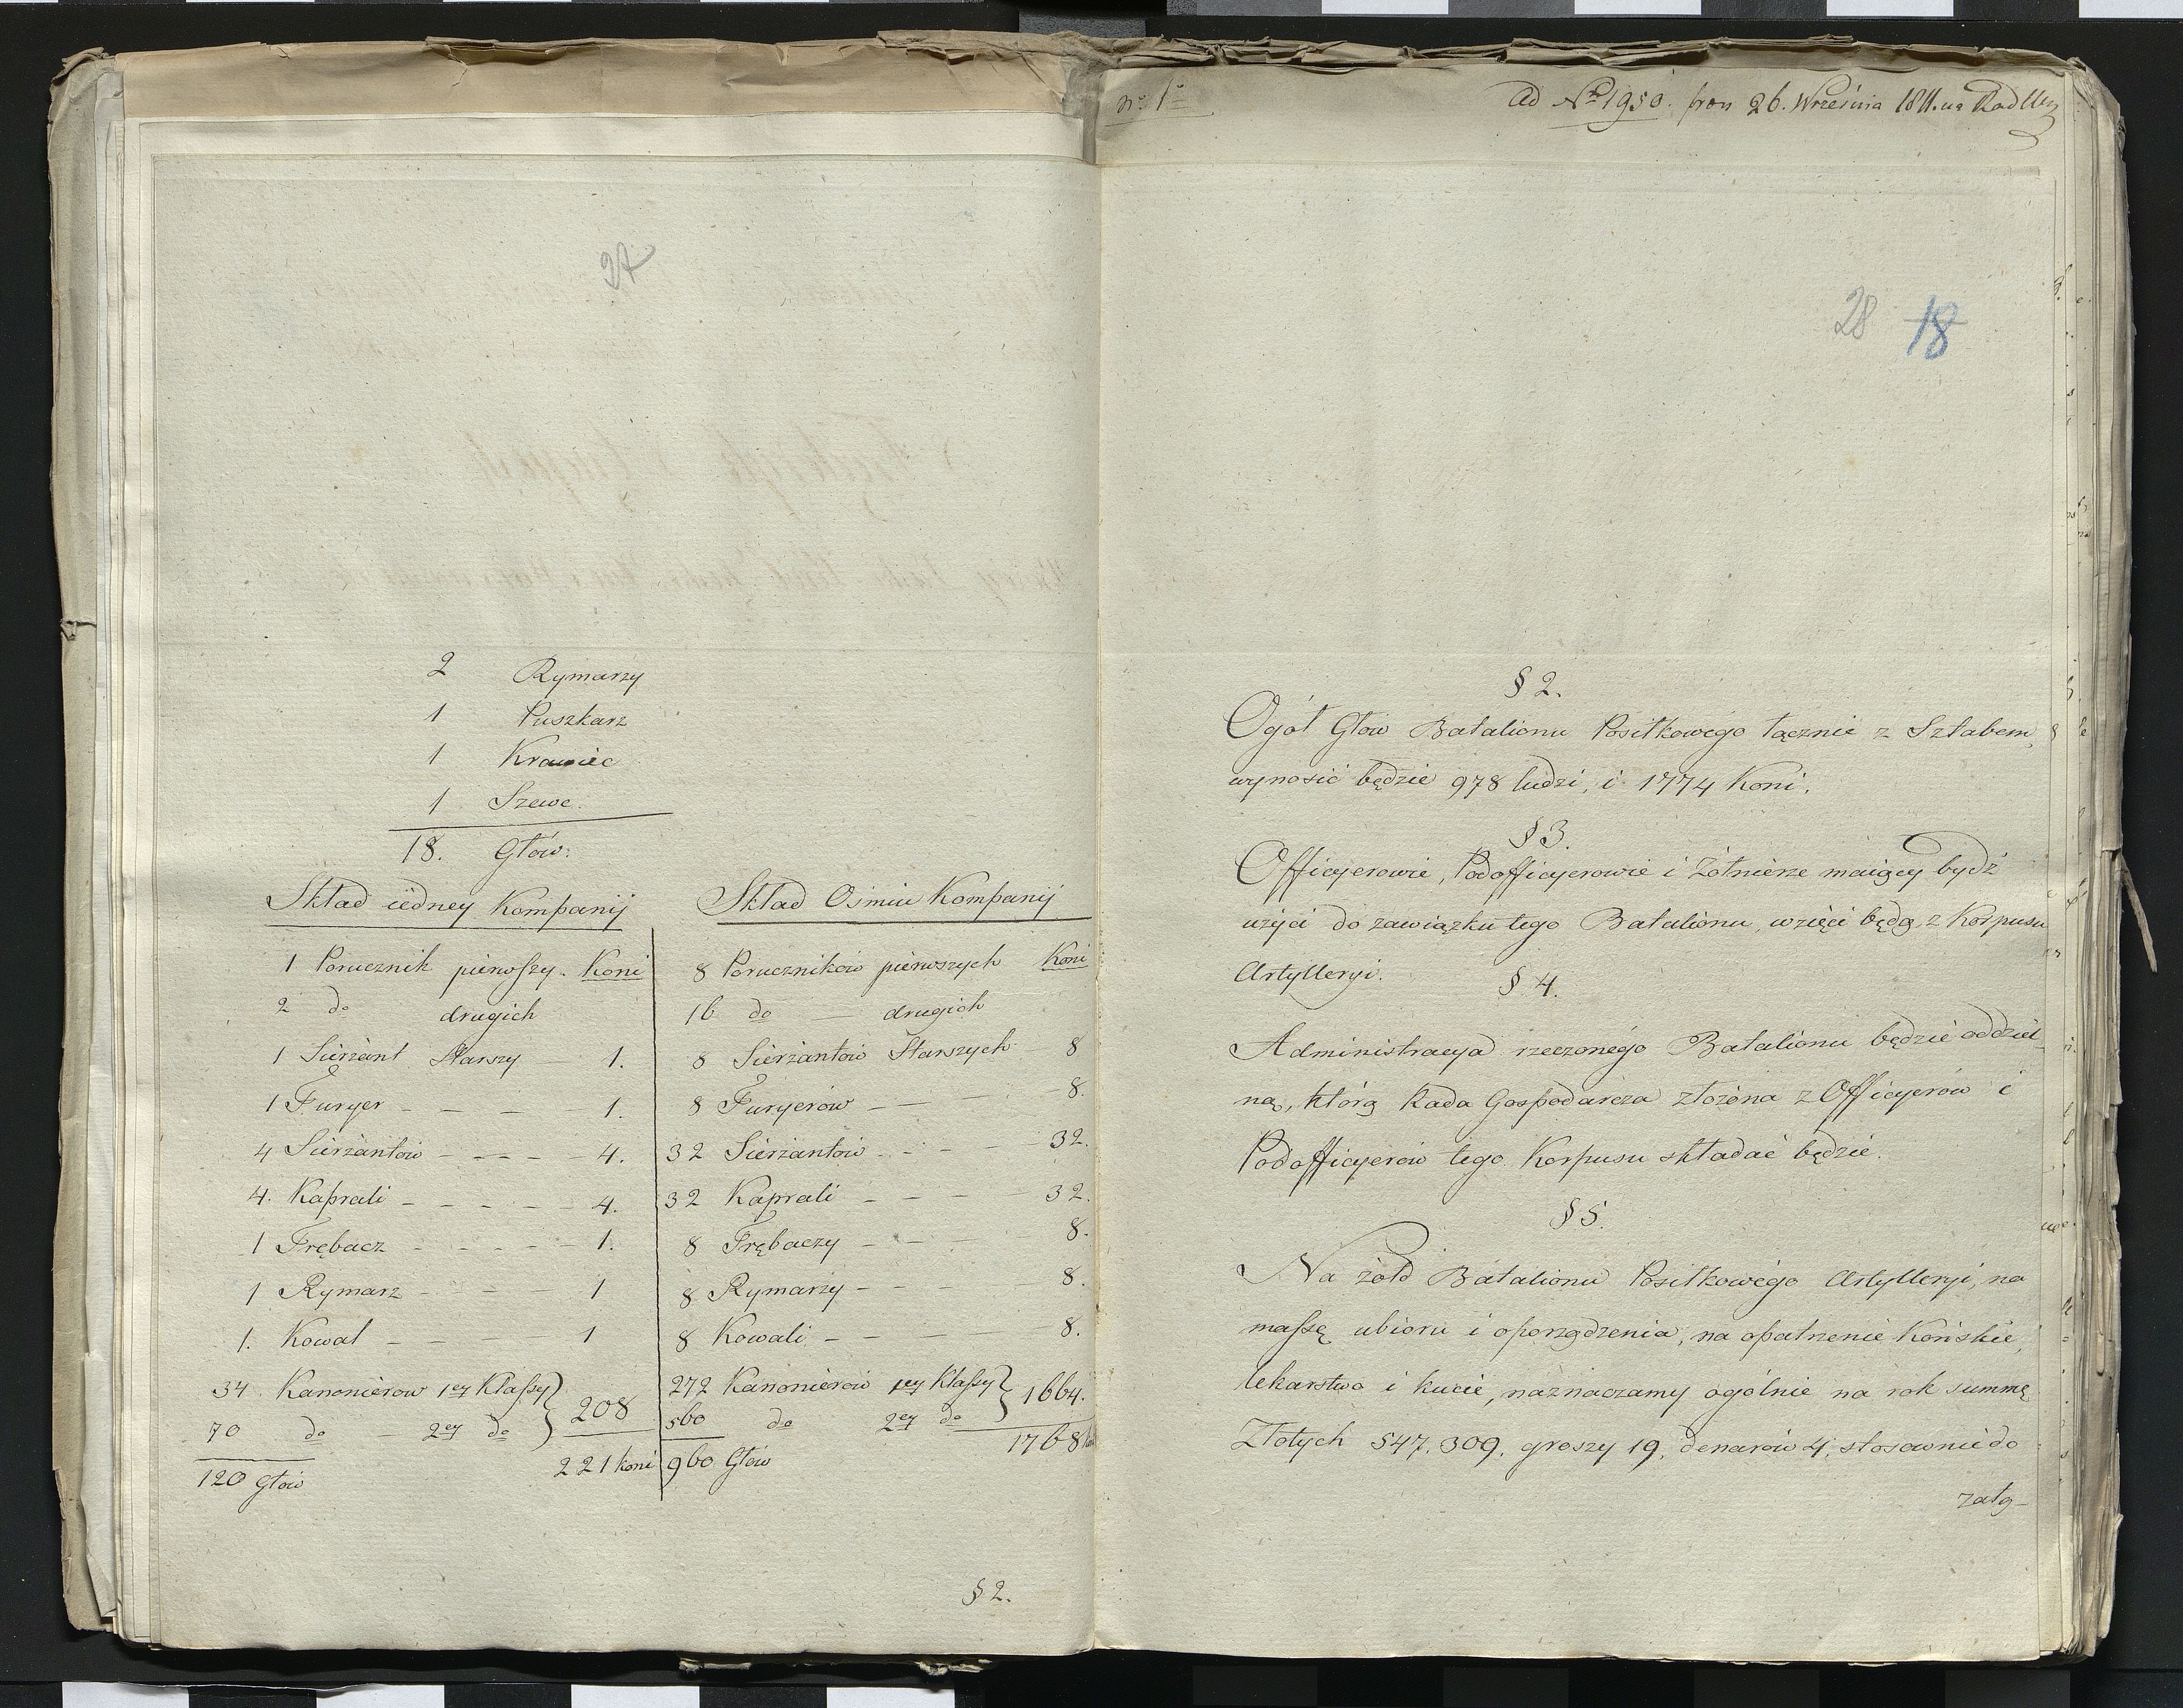 27
2 Rymarzy
1 Puszkarz
1 Krawiec
1 Szewc.
18. Głów.
Skład iedney Kompanij
1 Porucznik pierwszy. Koni
2 do drugich
1 Sierżant Starszy 1.
1 Furyer - - - 1.
4 Sierżantów - - - - 4.
4. Kaprali - - - - - 4.
1 Trębacz - - - - - 1.
1 Rymarz - - - 1
1. Kowal - - - - 1
34 Kanonierow 1ey Klassy } 208
70 do - 2ey do
120 Głów 221 koni
Skład Ośmiu Kompanij
8 Poruczników pierwszych Koni
16 do — drugich
8 Sierżantów Starszych - 8
8 Furyerów - - - 8.
32 Sierżantów - - - - 32.
32 Kaprali - - - 32.
8 Trębaczy - - - 8.
8 Rymarzy - - - - 8.
8 Kowali - - - - 8.
272 Kanonierów 1ey Klassy } 1664.
560 do 2ey do
960 Głów 1768
§ 2.
No 1o
Ad No 1950. 26. Września 1811.
28 18
§ 2.
Ogół Głów Batalionu Posiłkowego łącznie z Sztabem,
wynosić będzie 978 ludzi, i 1774 Koni.
§ 3.
Officyerowie, Podofficyerowie i Żołnierze maiący bydź
użyci do zawiązku tego Batalionu, wzięci będą z Korpusu
Artylleryi.
§ 4.
Administracya rzeczonégo Batalionu będzie oddziel-
ną, którą Rada Gospodarcza złożona z Officyerów i
Podofficyerów tego Korpusu składać będzie.
§ 5.
Na żołd Batalionu Posiłkowégo Artylleryi, na
massę ubioru i oporządzenia, na opatrzenie Końskie,
lekarstwa i kucie, naznaczamy ogólnie na rok summę
Złotych 547,309. groszy 19, denarów 4, stosownie do
załą-